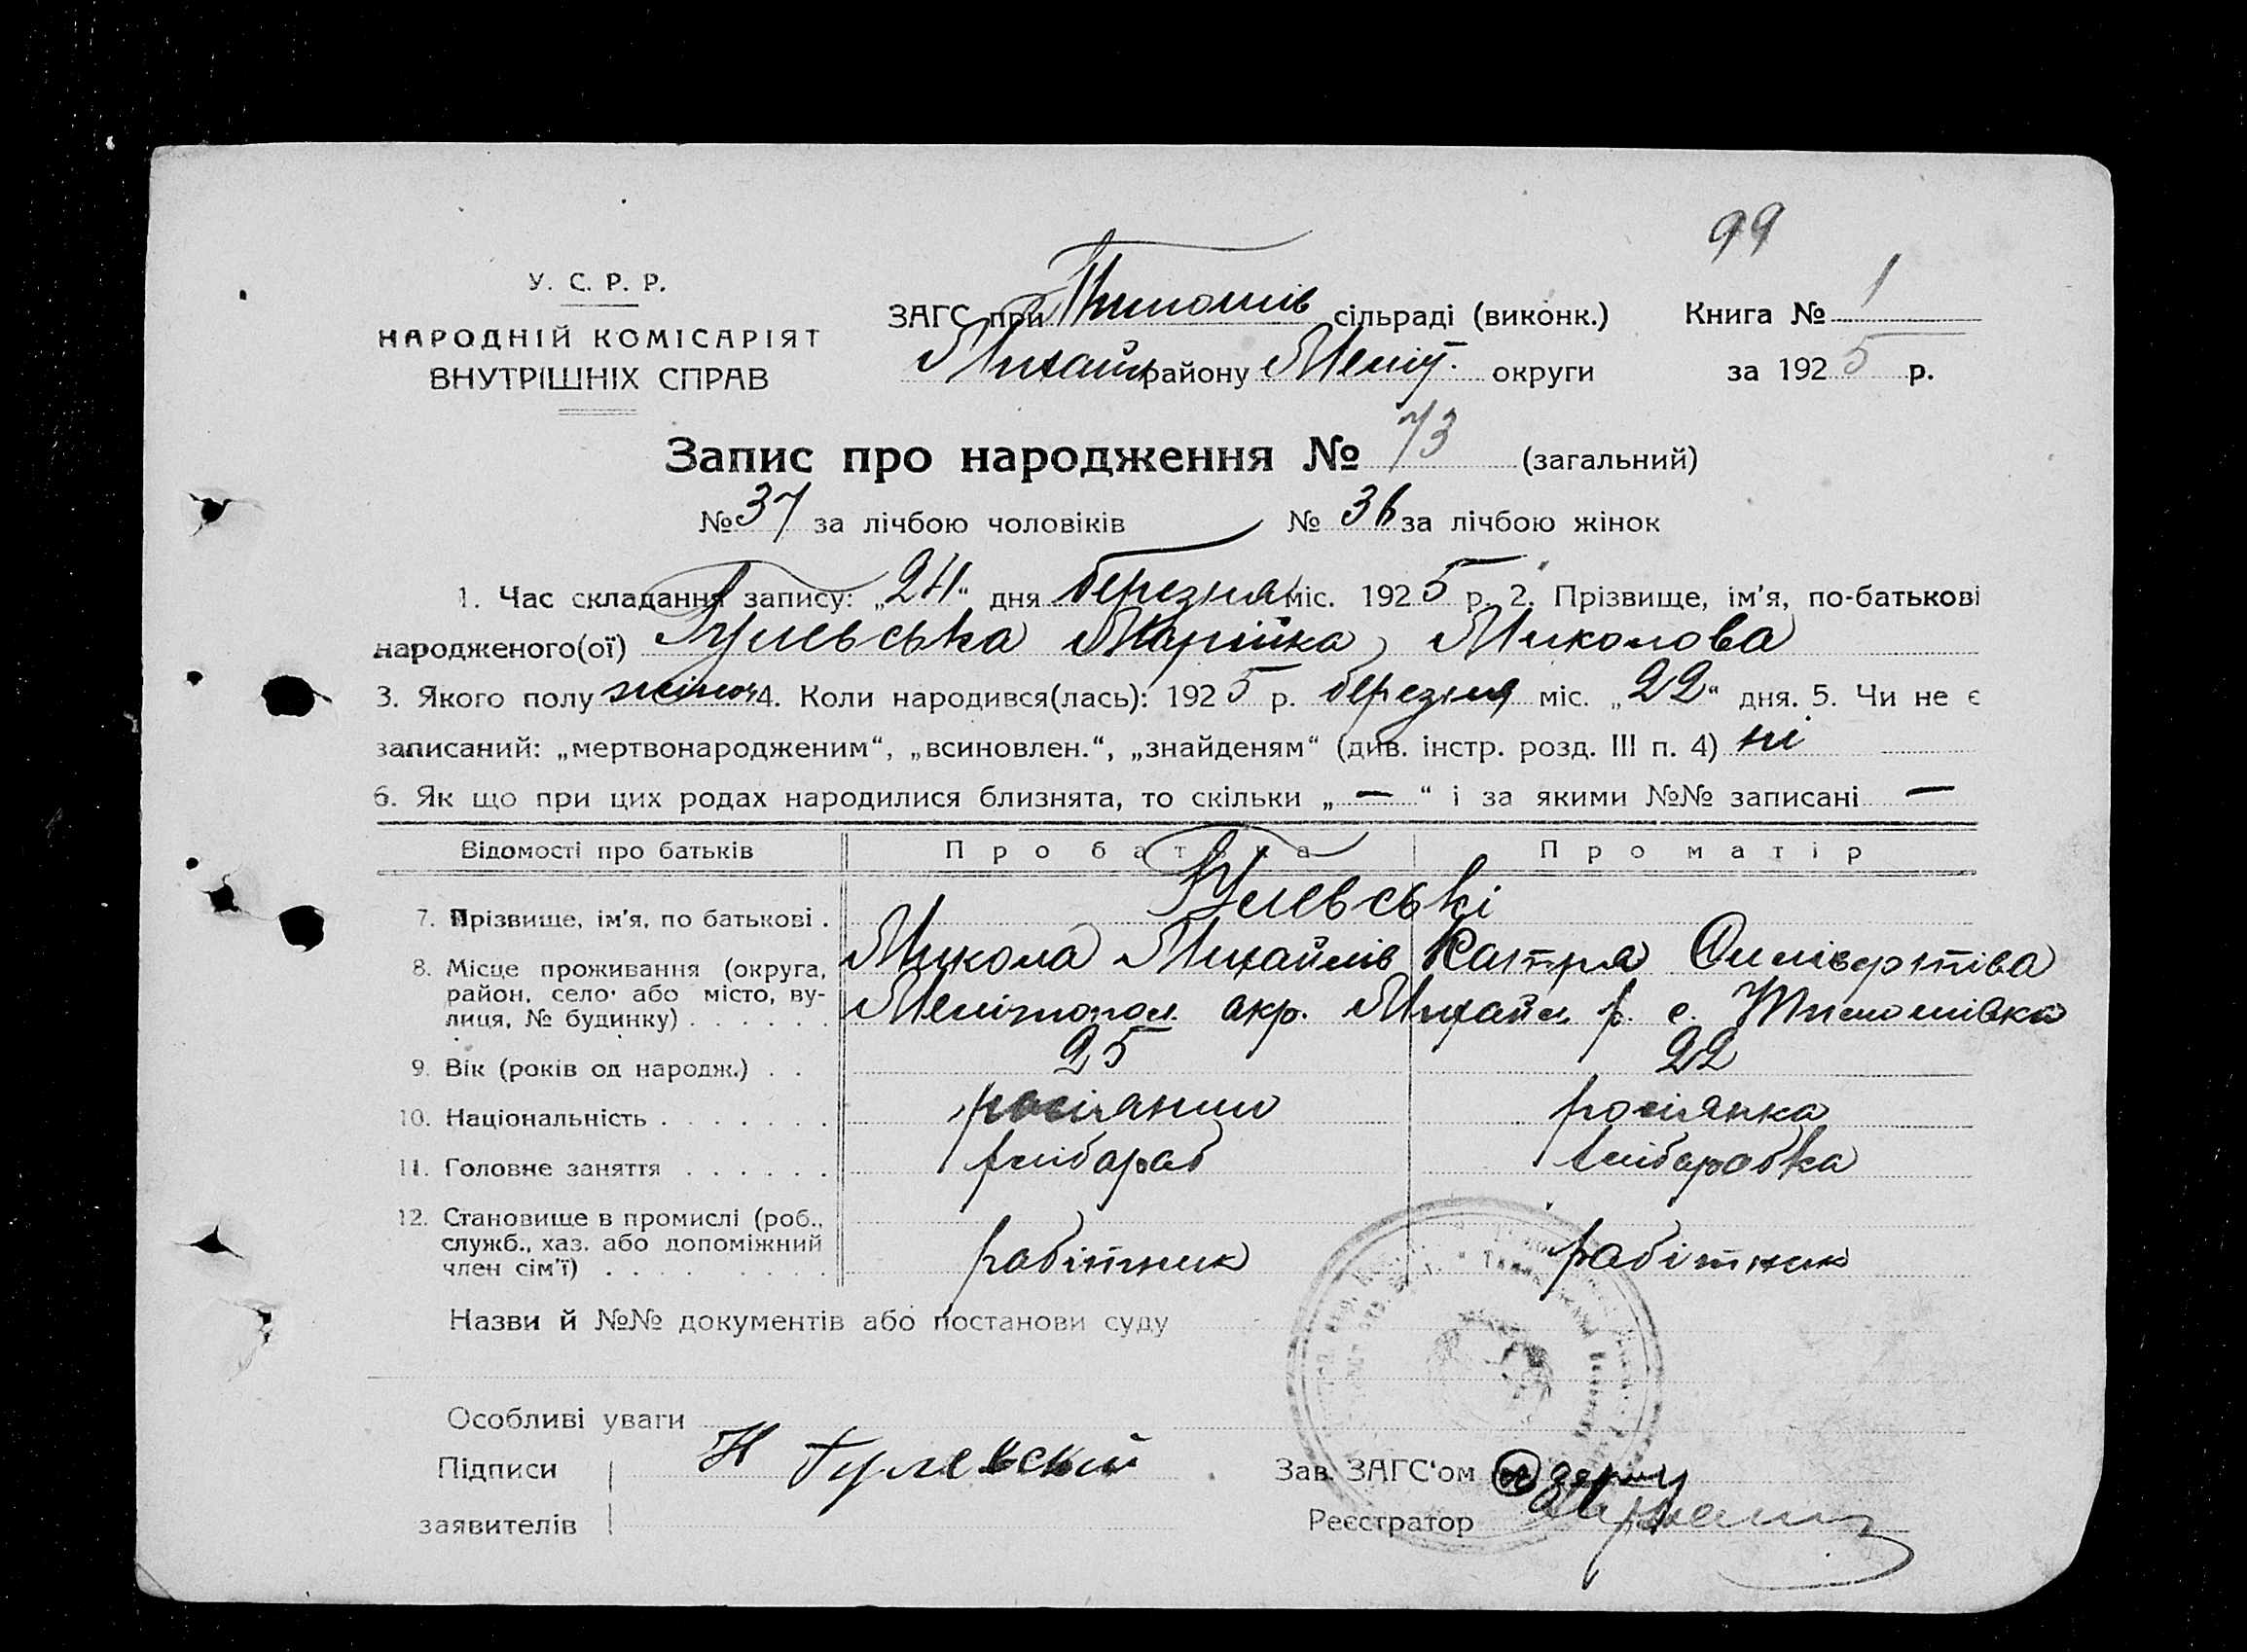 99
У. С. Р. Р.
НАРОДНІЙ КОМІСАРІЯТ
ВНУТРІШНІХ СПРАВ
ЗАГС при Тимошів сільраді (виконк.)
Михайл району Меліт. округи
Книга № 1
за 1925 р.
Запис про народження № 73 (загальний)
№ 37 за лічбою чоловіків № 36 за лічбою жінок
1. Час складання запису: „24“ дня березня міс. 1925 р. 2. Прізвище, ім'я, по-батькові
народженого(ої) Гулевська Марійка Миколова
3. Якого полу жіноч 4. Коли народився(лась): 1925 р. березня міс. „22“ дня. 5. Чи не є
записаний: „мертвонародженим“, „всиновлен.“, „знайденям“ (див. інстр. розд. III п. 4) ні
6. Як що при цих родах народилися близнята, то скільки „—“ і за якими №№ записані —
Відомості про батьків Про батька Про матір
7. Прізвище, ім'я, по батькові . Гулевські
Микола Михайлів Катря Оліверстіва
8. Місце проживання (округа, район, село або місто, вулиця, № будинку) . . . . . . Мелітопол. окр. Михайл. р. с. Тимошівка
9. Вік (років од народж.) . . 25 22
10. Національність . . . . . . . росіянин росіянка
11. Головне заняття . . . . . . хлібароб хлібаробка
12. Становище в промислі (роб., служб., хаз. або допоміжний член сім'ї) . . . . . . . . рабітник рабітник
Назви й №№ документів або постанови суду
Особливі уваги
Підписи
заявителів
Н Гулевский
Зав. ЗАГС'ом
Реєстратор